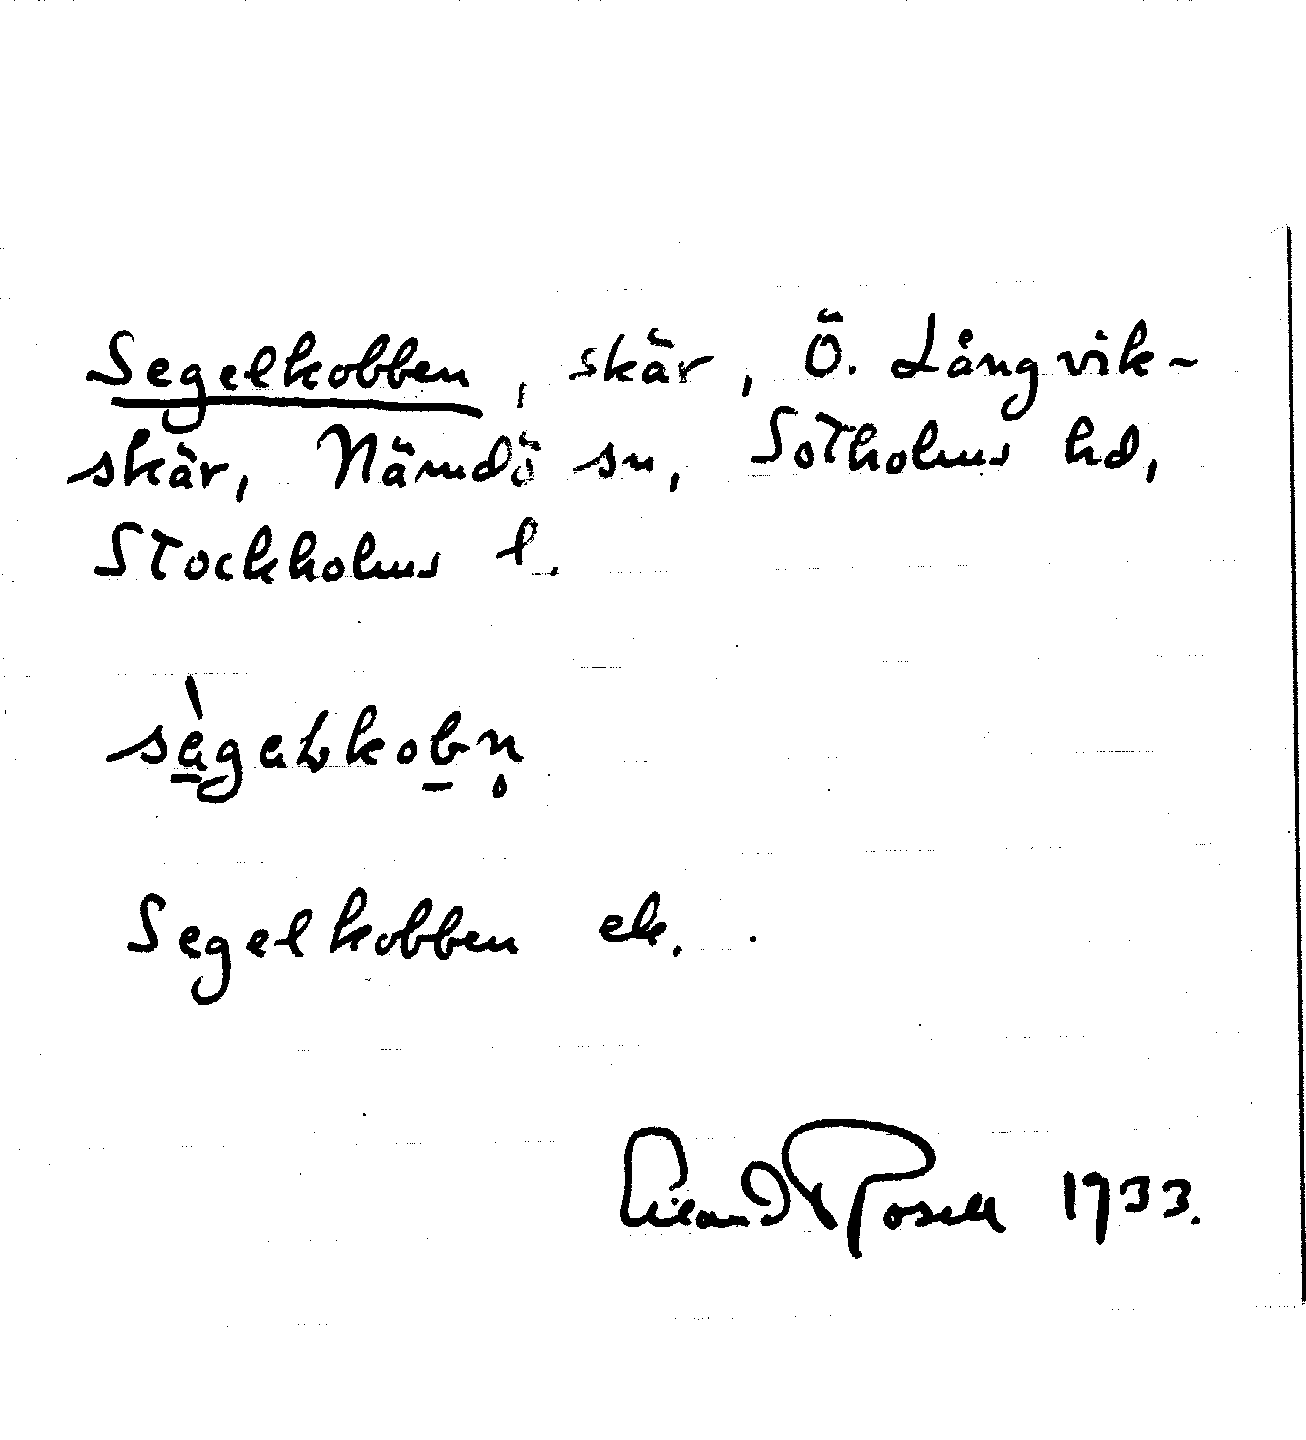 Segelkobben, skär, Ö. Långvik-
skär, Nämdö sn, Sotholms hd,
Stockholms l.
Segelkobben ek.
Rosell 1933.